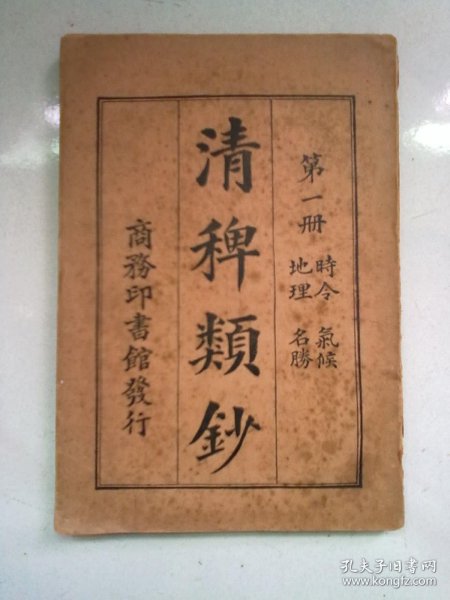 第一册
時令 氣候
地理 名勝
清稗類鈔
商務印書館發行
孔夫子旧书网
www.kongfz.com